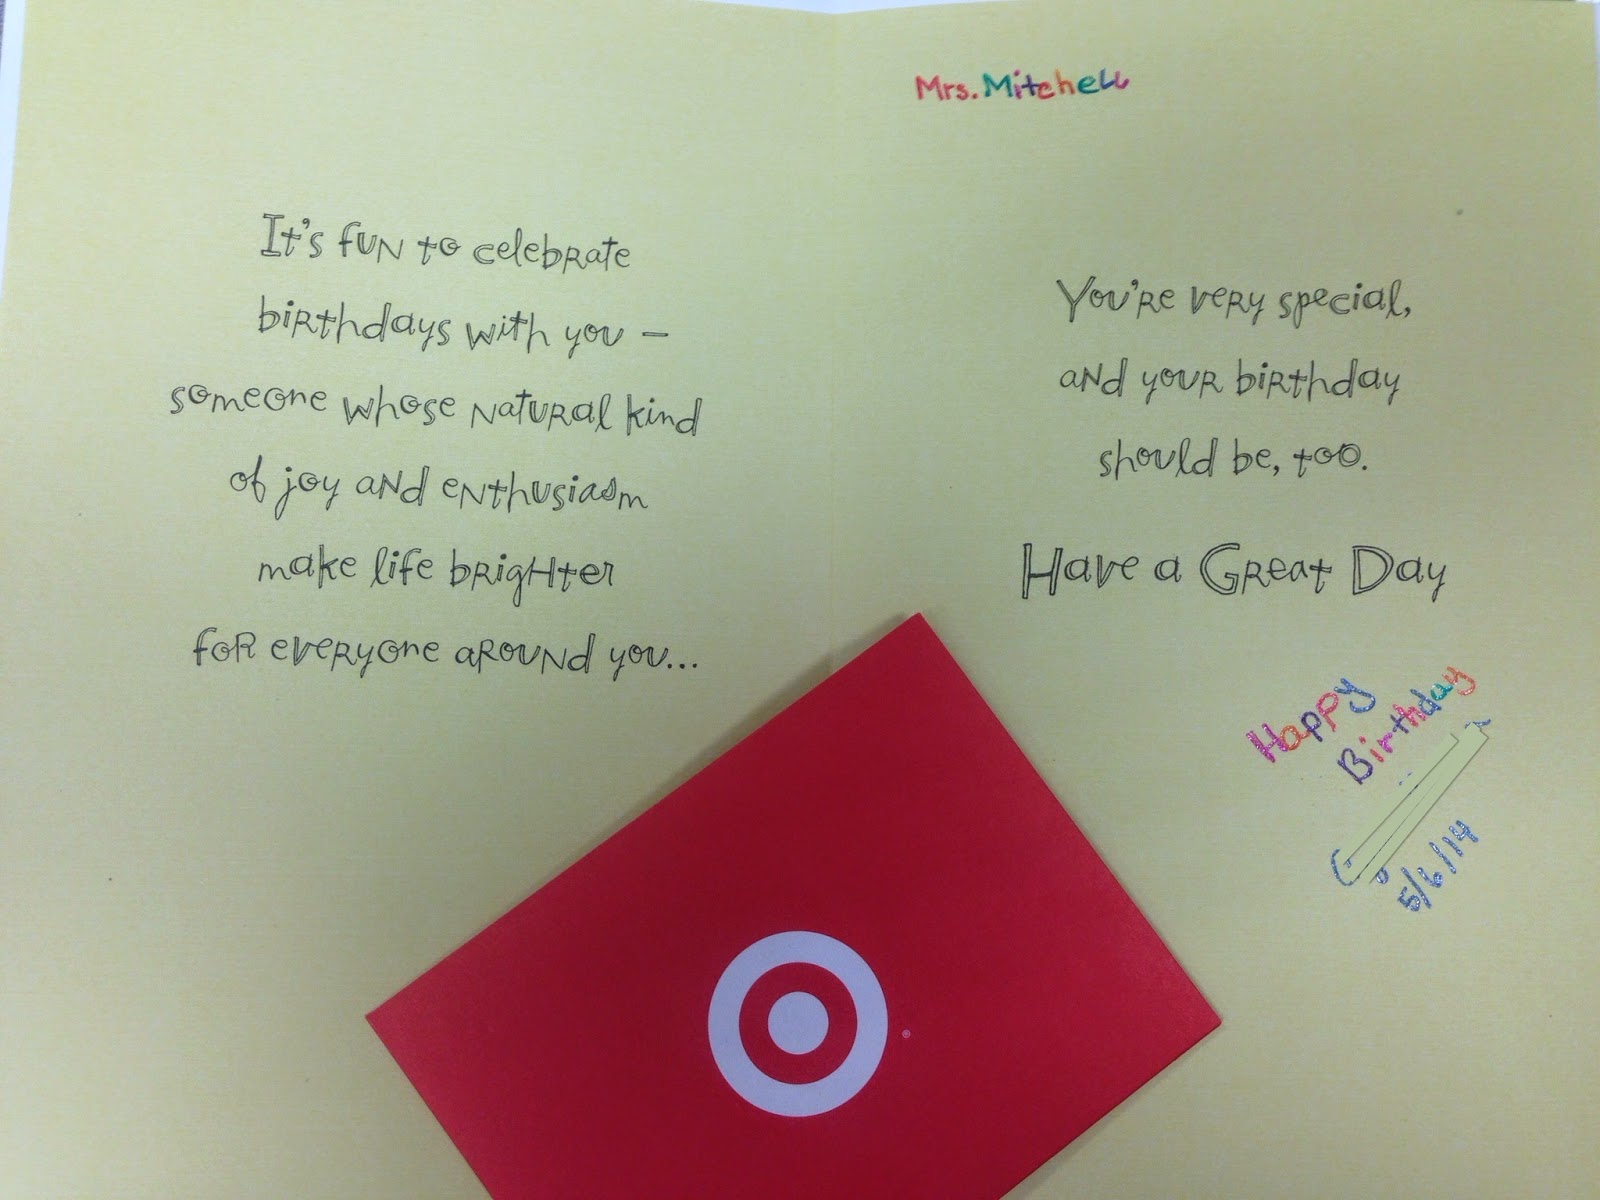 It's fun to celebrate
birthdays with you –
someone whose natural kind
of joy and enthusiasm
make life brighter
for everyone around you...
Mrs. Mitchell
You're very special,
and your birthday
should be, too.
Have a Great Day
Happy
Birthday
5/6/14
®